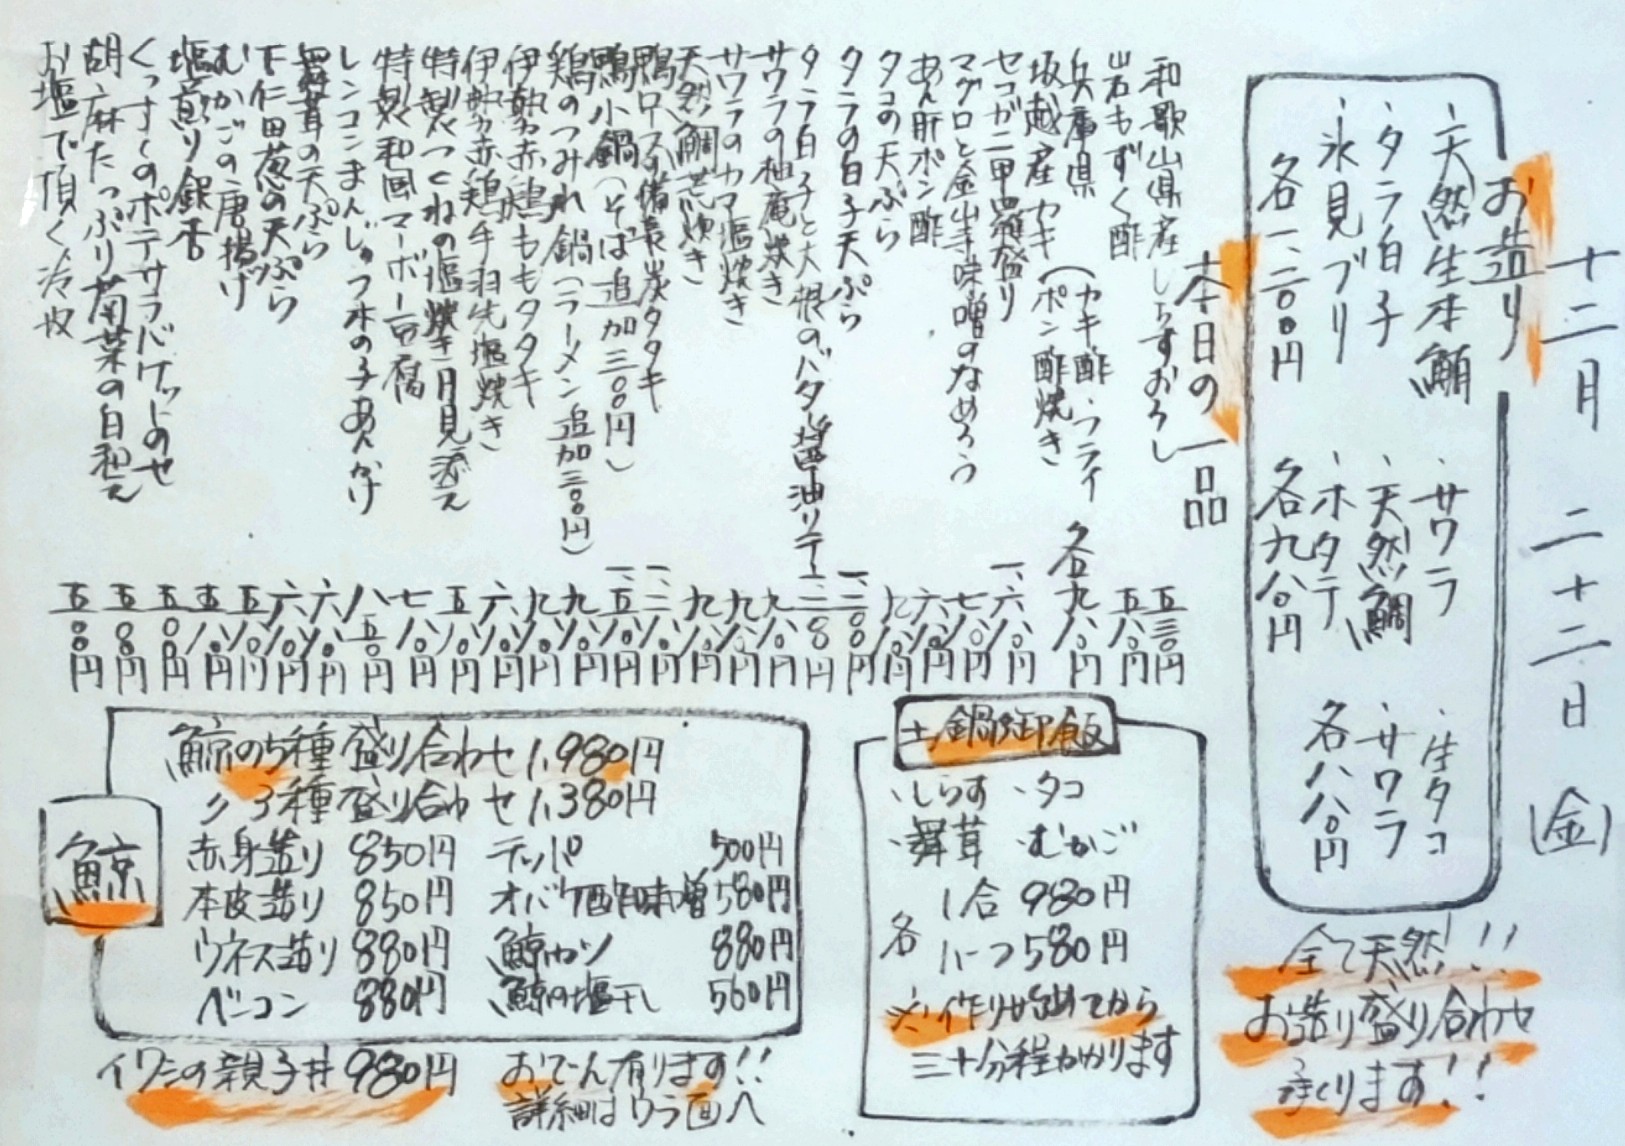 十二月 二十二日 (金)
お造り
・天然生本鮪
・タラ白子
・氷見ブリ
各一、二〇〇円
・サワラ
・天然鯛
・ホタテ
各九八〇円
・生タコ
・サワラ
各八八〇円
全て天然!!
お造り盛り合わせ
承くります!!
本日の一品
和歌山県産しらすおろし 五三〇円
岩もずく酢 五八〇円
兵庫県坂越産カキ(カキ酢・フライ・ポン酢焼き) 各九八〇円
セコガニ甲羅盛り 一、六八〇円
マグロと金山寺味噌のなめろう 七八〇円
あん肝ポン酢 六八〇円
タコの天ぷら 八八〇円
タラの白子天ぷら 一、二〇〇円
タラ白子と大根のバター醤油ソテー 一、二〇〇円
サワラの柚庵焼き 九八〇円
サワラのカマ塩焼き 九八〇円
天然鯛荒炊き 九八〇円
鴨ロースの備長炭タタキ 一、二八〇円
鴨小鍋(そば追加三〇〇円) 一、五八〇円
鶏のつみれ鍋(ラーメン追加三〇〇円) 九八〇円
伊勢赤鶏ももタタキ 九八〇円
伊勢赤鶏手羽先塩焼き 六八〇円
特製つくねの塩焼き月見添え 五八〇円
特製和風マーボー豆腐 七八〇円
レンコンまんじゅう木の子あんかけ 八五〇円
舞茸の天ぷら 六八〇円
下仁田葱の天ぷら 六八〇円
むかごの唐揚げ 五八〇円
塩煎り銀杏 五八〇円
くっすくのポテサラバゲットのせ 五八〇円
胡麻たっぷり菊菜の白和え 五八〇円
お塩で頂く冷奴 五〇〇円
土鍋御飯
・しらす ・タコ
・舞茸 ・むかご
各 1合 980円
1/2 580円
※作り始めてから
三十分程かかります
鯨
鯨の5種盛り合わせ 1,980円
〃 3種盛り合わせ 1,380円
赤身造り 850円 テッパ 500円
本皮造り 850円 オバケ酢味噌 580円
ウネス造り 880円 鯨カツ 880円
ベーコン 880円 鯨の塩干し 560円
イワシの親子丼 980円
おでん有ります!!
詳細はウラ面へ